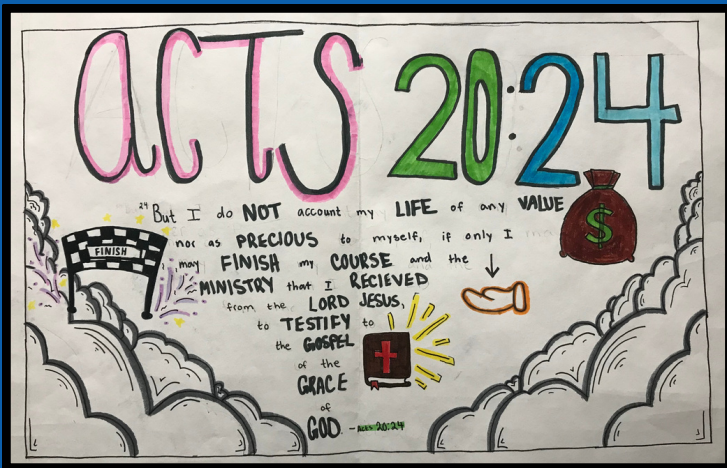 ACTS 20:24
24 But I do NOT account my LIFE of any VALUE
$
nor as PRECIOUS to myself, if only I
FINISH
may FINISH my COURSE and the
MINISTRY that I RECIEVED
from the LORD JESUS,
to TESTIFY to
the GOSPEL
of the
GRACE
of
GOD. - ACTS 20:24